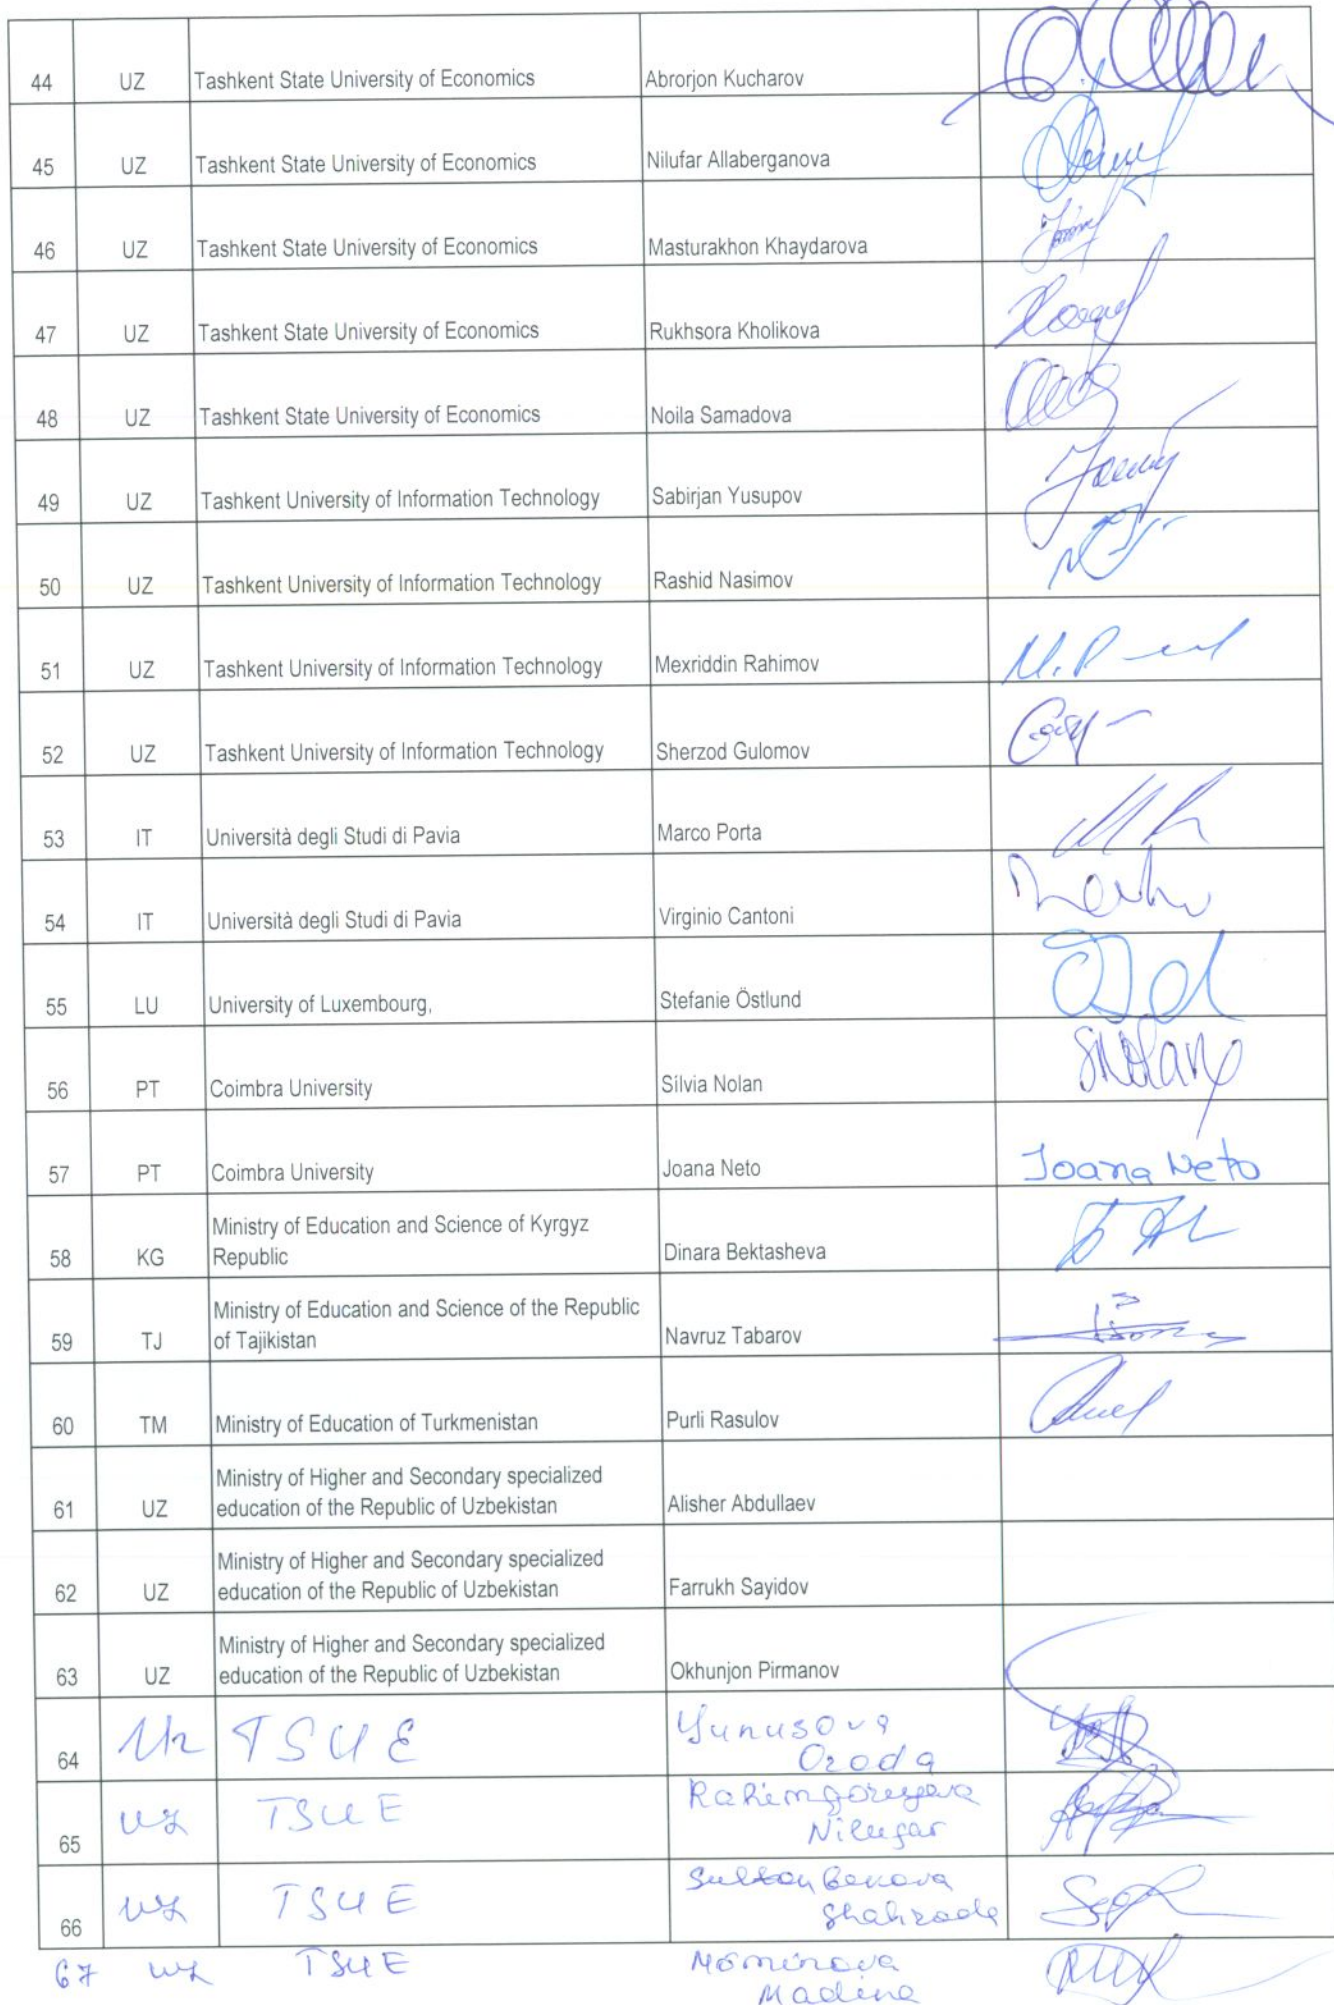 44 UZ Tashkent State University of Economics Abrorjon Kucharov
45 UZ Tashkent State University of Economics Nilufar Allaberganova
46 UZ Tashkent State University of Economics Masturakhon Khaydarova
47 UZ Tashkent State University of Economics Rukhsora Kholikova
48 UZ Tashkent State University of Economics Noila Samadova
49 UZ Tashkent University of Information Technology Sabirjan Yusupov
50 UZ Tashkent University of Information Technology Rashid Nasimov
51 UZ Tashkent University of Information Technology Mexriddin Rahimov
52 UZ Tashkent University of Information Technology Sherzod Gulomov
53 IT Università degli Studi di Pavia Marco Porta
54 IT Università degli Studi di Pavia Virginio Cantoni
55 LU University of Luxembourg, Stefanie Östlund
56 PT Coimbra University Silvia Nolan SNolan
57 PT Coimbra University Joana Neto Joana Neto
Ministry of Education and Science of Kyrgyz
58 KG Republic Dinara Bektasheva
Ministry of Education and Science of the Republic
59 TJ of Tajikistan Navruz Tabarov
60 TM Ministry of Education of Turkmenistan Purli Rasulov
Ministry of Higher and Secondary specialized
61 UZ education of the Republic of Uzbekistan Alisher Abdullaev
Ministry of Higher and Secondary specialized
62 UZ education of the Republic of Uzbekistan Farrukh Sayidov
Ministry of Higher and Secondary specialized
63 UZ education of the Republic of Uzbekistan Okhunjon Pirmanov
64 Uz TSUE Yunusova
Ozoda
65 uz TSUE
Nilufar
66 uz TSUE
Shahzoda
67 uz TSUE Mominova
Madina